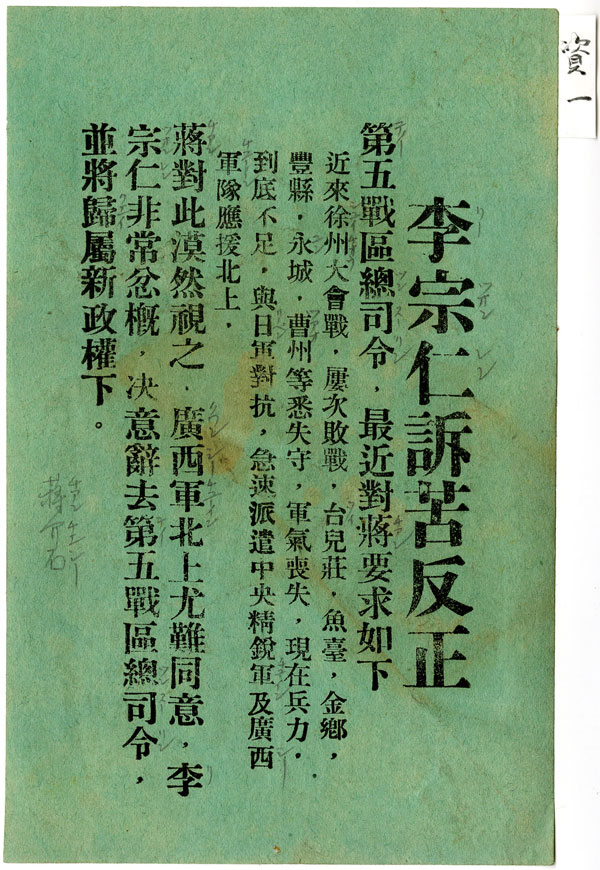 資一
李宗仁訴苦反正
第五戰區總司令．最近對蔣要求如下
近來徐州大會戰．屢次敗戰．台兒莊．魚臺，金鄉，
豐縣．永城．曹州等悉失守，軍氣喪失，現在兵力．
到底不足，與日軍對抗，急速派遣中央精銳軍及廣西
軍隊應援北上．
蔣對此漠然視之．廣西軍北上尤難同意，李
宗仁非常忿概．决意辭去第五戰區總司令，
並將歸屬新政權下。
蔣介石